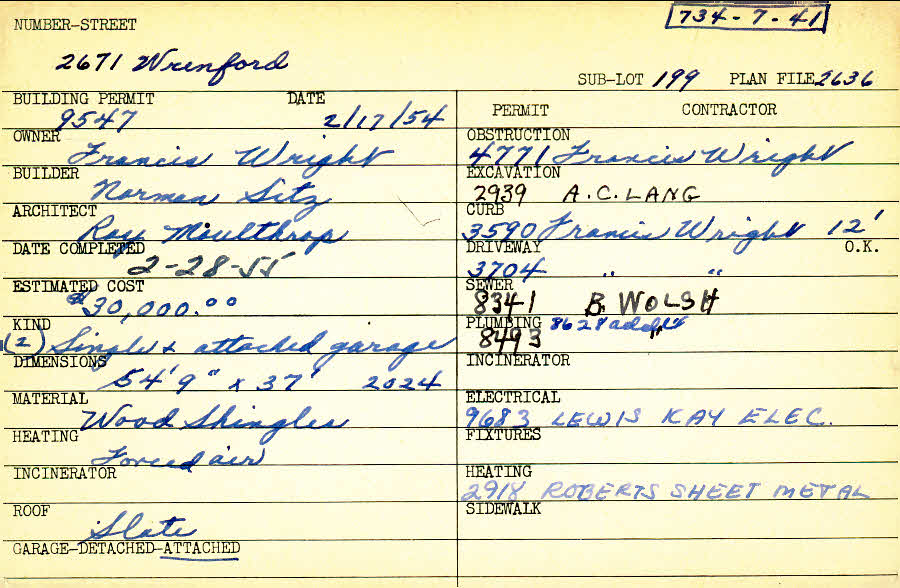 734-7-41
NUMBER-STREET
2671 Wrenford
SUB-LOT 199 PLAN FILE 2636
BUILDING PERMIT DATE
9547 2/17/54
OWNER
Francis Wright
BUILDER
Norman Sitz
ARCHITECT
Roy Moulthrop
DATE COMPLETED
2-28-55
ESTIMATED COST
$30,000.00
KIND
(2) Single & attached garage
DIMENSIONS
54' 9" x 37' 2024
MATERIAL
Wood Shingles
HEATING
Forced air
INCINERATOR
ROOF
Slate
GARAGE-DETACHED-ATTACHED
PERMIT CONTRACTOR
OBSTRUCTION
4771 Francis Wright
EXCAVATION
2939 A.C. LANG
CURB
3590 Francis Wright 12'
DRIVEWAY O.K.
3704 " "
SEWER
8341 B. WOLSH
PLUMBING 8628
8493 "
INCINERATOR
ELECTRICAL
9683 LEWIS KAY ELEC.
FIXTURES
HEATING
2918 ROBERTS SHEET METAL
SIDEWALK